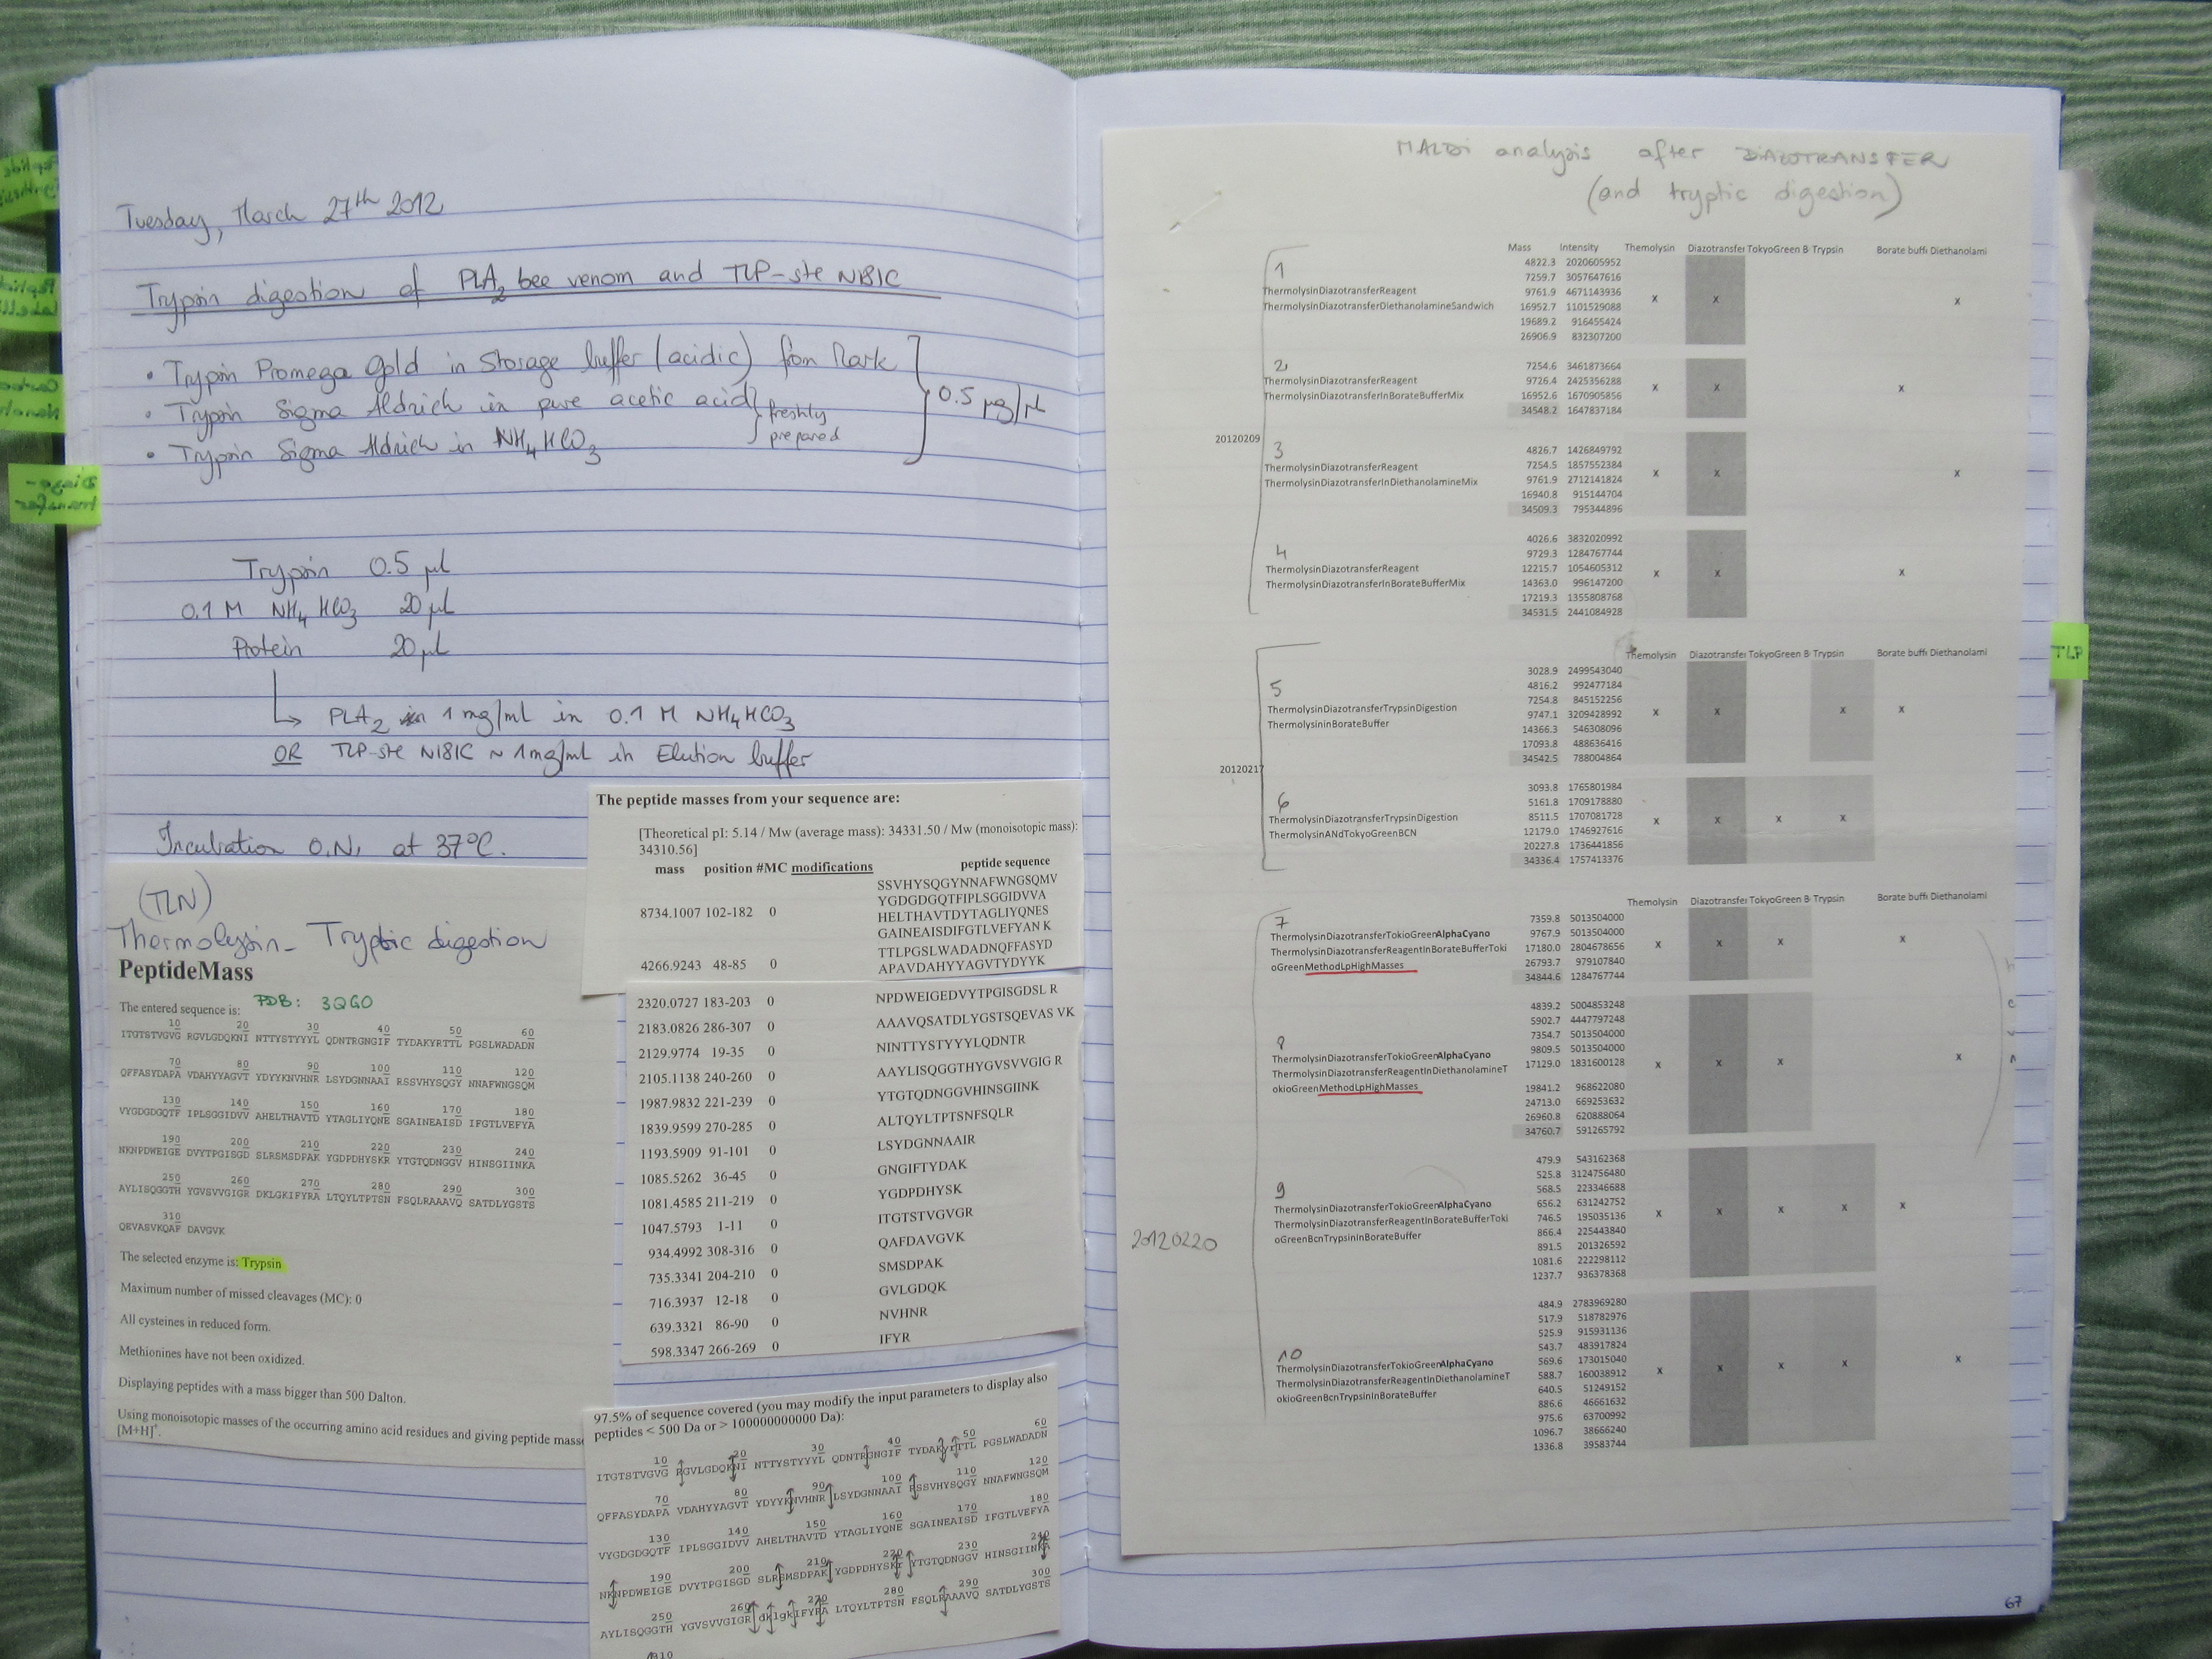 Tuesday, March 27th 2012
Trypsin digestion of PLA2 bee venom and TLP-ste N181C
• Trypsin Promega Gold in Storage buffer (acidic) from Mark
• Trypsin Sigma Aldrich in pure acetic acid
• Trypsin Sigma Aldrich in NH4HCO3
freshly
prepared
0.5 µg/µl
Diazo-
transfer
Trypsin 0.5 µl
0.1 M NH4HCO3 20 µl
Protein 20 µl
PLA2 in 1 mg/ml in 0.1 M NH4HCO3
OR TLP-ste N181C ~ 1mg/ml in Elution buffer
Incubation O.N. at 37°C.
(TLN)
Thermolysin - Tryptic digestion
PeptideMass
The entered sequence is: PDB: 3QGO
10 20 30 40 50 60
ITGTSTVGVG RGVLGDQKNI NTTYSTYYYL QDNTRGNGIF TYDAKYRTTL PGSLWADADN
70 80 90 100 110 120
QFFASYDAPA VDAHYYAGVT YDYYKNVHNR LSYDGNNAAI RSSVHYSQGY NNAFWNGSQM
130 140 150 160 170 180
VYGDGDGQTF IPLSGGIDVV AHELTHAVTD YTAGLIYQNE SGAINEAISD IFGTLVEFYA
190 200 210 220 230 240
NKNPDWEIGE DVYTPGISGD SLRSMSDPAK YGDPDHYSKR YTGTQDNGGV HINSGIINKA
250 260 270 280 290 300
AYLISQGGTH YGVSVVGIGR DKLGKIFYRA LTQYLTPTSN FSQLRAAAVQ SATDLYGSTS
310
QEVASVKQAF DAVGVK
The selected enzyme is: Trypsin
Maximum number of missed cleavages (MC): 0
All cysteines in reduced form.
Methionines have not been oxidized.
Displaying peptides with a mass bigger than 500 Dalton.
Using monoisotopic masses of the occurring amino acid residues and giving peptide masse
[M+H]+.
The peptide masses from your sequence are:
[Theoretical pI: 5.14 / Mw (average mass): 34331.50 / Mw (monoisotopic mass):
34310.56]
mass position #MC modifications peptide sequence
SSVHYSQGYNNAFWNGSQMV
YGDGDGQTFIPLSGGIDVVA
8734.1007 102-182 0 HELTHAVTDYTAGLIYQNES
GAINEAISDIFGTLVEFYAN K
TTLPGSLWADADNQFFASYD
4266.9243 48-85 0 APAVDAHYYAGVTYDYYK
2320.0727 183-203 0 NPDWEIGEDVYTPGISGDSL R
2183.0826 286-307 0 AAAVQSATDLYGSTSQEVAS VK
2129.9774 19-35 0 NINTTYSTYYYLQDNTR
2105.1138 240-260 0 AAYLISQGGTHYGVSVVGIG R
1987.9832 221-239 0 YTGTQDNGGVHINSGIINK
1839.9599 270-285 0 ALTQYLTPTSNFSQLR
1193.5909 91-101 0 LSYDGNNAAIR
1085.5262 36-45 0 GNGIFTYDAK
1081.4585 211-219 0 YGDPDHYSK
1047.5793 1-11 0 ITGTSTVGVGR
934.4992 308-316 0 QAFDAVGVK
735.3341 204-210 0 SMSDPAK
716.3937 12-18 0 GVLGDQK
639.3321 86-90 0 NVHNR
598.3347 266-269 0 IFYR
97.5% of sequence covered (you may modify the input parameters to display also
peptides < 500 Da or > 100000000000 Da):
10 20 30 40 50 60
ITGTSTVGVG RGVLGDQKNI NTTYSTYYYL QDNTRGNGIF TYDAKyrTTL PGSLWADADN
70 80 90 100 110 120
QFFASYDAPA VDAHYYAGVT YDYYKNVHNR LSYDGNNAAI RSSVHYSQGY NNAFWNGSQM
130 140 150 160 170 180
VYGDGDGQTF IPLSGGIDVV AHELTHAVTD YTAGLIYQNE SGAINEAISD IFGTLVEFYA
190 200 210 220 230 240
NKNPDWEIGE DVYTPGISGD SLRSMSDPAK YGDPDHYSKr YTGTQDNGGV HINSGIINKA
250 260 270 280 290 300
AYLISQGGTH YGVSVVGIGR dklgkIFYRA LTQYLTPTSN FSQLRAAAVQ SATDLYGSTS
310
MALDI analysis after DIAZOTRANSFER
(and tryptic digestion)
Mass Intensity Themolysin Diazotransfer TokyoGreen B Trypsin Borate buffe Diethanolami
20120209
1
ThermolysinDiazotransferReagent
ThermolysinDiazotransferDiethanolamineSandwich
4822.3 2020605952
7259.7 3057647616
9761.9 4671143936
16952.7 1101529088 x x x
19689.2 916455424
26906.9 832307200
2
ThermolysinDiazotransferReagent
ThermolysinDiazotransferInBorateBufferMix
7254.6 3461873664
9726.4 2425356288 x x x
16952.6 1670905856
34548.2 1647837184
3
ThermolysinDiazotransferReagent
ThermolysinDiazotransferInDiethanolamineMix
4826.7 1426849792
7254.5 1857552384
9761.9 2712141824 x x x
16940.8 915144704
34509.3 795344896
4
ThermolysinDiazotransferReagent
ThermolysinDiazotransferInBorateBufferMix
4026.6 3832020992
9729.3 1284767744
12215.7 1054605312 x x x
14363.0 996147200
17219.3 1355808768
34531.5 2441084928
Themolysin Diazotransfer TokyoGreen B Trypsin Borate buffe Diethanolami
20120217
5
ThermolysinDiazotransferTrypsinDigestion
ThermolysininBorateBuffer
3028.9 2499543040
4816.2 992477184
7254.8 845152256
9747.1 3209428992 x x x x
14366.3 546308096
17093.8 488636416
34542.5 788004864
6
ThermolysinDiazotransferTrypsinDigestion
ThermolysinANdTokyoGreenBCN
3093.8 1765801984
5161.8 1709178880
8511.5 1707081728 x x x x
12179.0 1746927616
20227.8 1736441856
34336.4 1757413376
Themolysin Diazotransfer TokyoGreen B Trypsin Borate buffe Diethanolami
20120220
7
ThermolysinDiazotransferTokioGreenAlphaCyano
ThermolysinDiazotransferReagentInBorateBufferToki
oGreenMethodLpHighMasses
7359.8 5013504000
9767.9 5013504000
17180.0 2804678656 x x x x
26793.7 979107840
34844.6 1284767744
8
ThermolysinDiazotransferTokioGreenAlphaCyano
ThermolysinDiazotransferReagentInDiethanolamineT
okioGreenMethodLpHighMasses
4839.2 5004853248
5902.7 4447797248
7354.7 5013504000
9809.5 5013504000
17129.0 1831600128 x x x x
19841.2 968622080
24713.0 669253632
26960.8 620888064
34760.7 591265792
9
ThermolysinDiazotransferTokioGreenAlphaCyano
ThermolysinDiazotransferReagentInBorateBufferToki
oGreenBcnTrypsinInBorateBuffer
479.9 543162368
525.8 3124756480
568.5 223346688
656.2 631242752
746.5 195035136 x x x x x
866.4 225443840
891.5 201326592
1081.6 222298112
1237.7 936378368
10
ThermolysinDiazotransferTokioGreenAlphaCyano
ThermolysinDiazotransferReagentInDiethanolamineT
okioGreenBcnTrypsinInBorateBuffer
484.9 2783969280
517.9 518782976
525.9 915931136
543.7 483917824
569.6 173015040
588.7 160038912 x x x x x
640.5 51249152
886.6 46661632
975.6 63700992
1096.7 38666240
1336.8 39583744
TLP
67